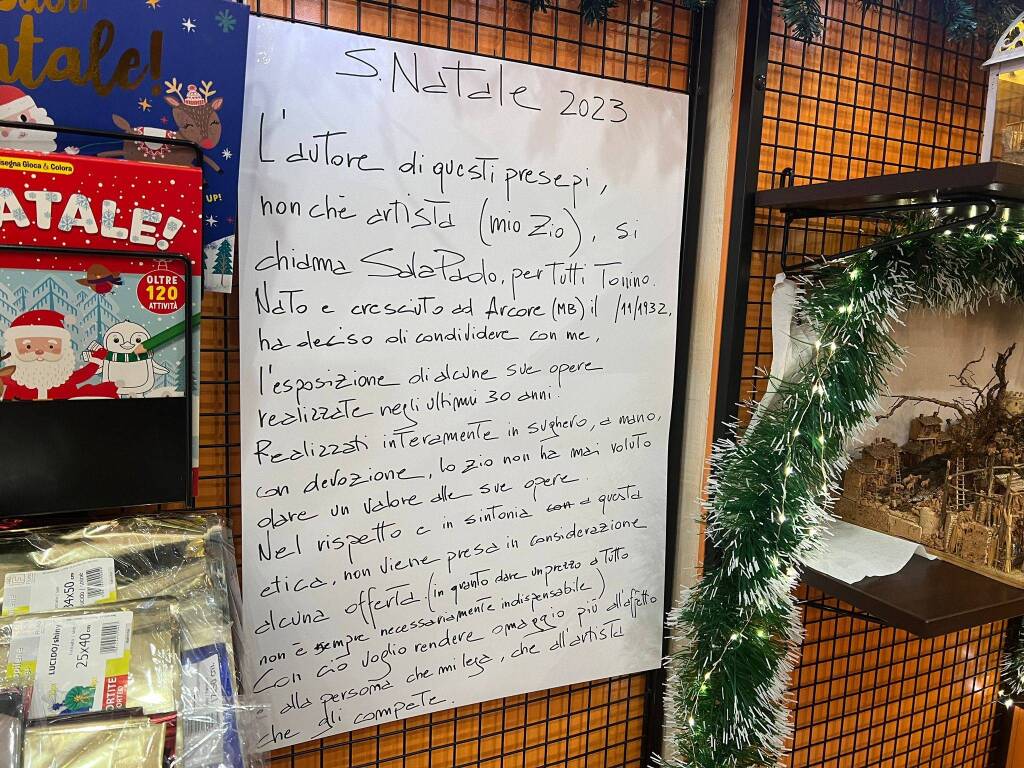 Buon
Natale!
Disegna Gioca & Colora
NATALE!
UP!
OLTRE
120
ATTIVITÀ
34x50 cm
LUCIDO/shiny
25x40 cm
S. Natale 2023
L'autore di questi presepi,
nonchè artista (mio zio), si
chiama Sala Paolo, per tutti Tonino.
Nato e cresciuto ad Arcore (MB) il /11/1932,
ha deciso di condividere con me,
l'esposizione di alcune sue opere
realizzate negli ultimi 30 anni.
Realizzati interamente in sughero, a mano,
con devozione, lo zio non ha mai voluto
dare un valore alle sue opere.
Nel rispetto e in sintonia con a questa
etica, non viene presa in considerazione
alcuna offerta (in quanto dare un prezzo a tutto
non è sempre necessariamente indispensabile)
Con ciò voglio rendere omaggio più all'affetto
e alla persona che mi lega, che all'artista
che gli compete.